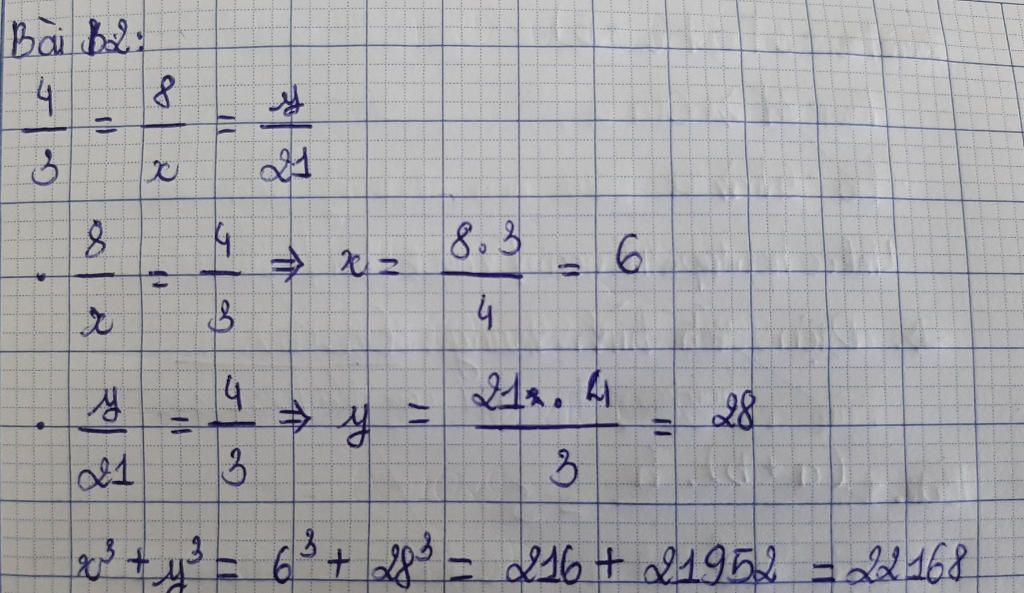 Bài B2:
4/3 = 8/x = y/21
. 8/x = 4/3 ⇒ x = 8.3/4 = 6
. y/21 = 4/3 ⇒ y = 21.4/3 = 28
x³ + y³ = 6³ + 28³ = 216 + 21952 = 22168